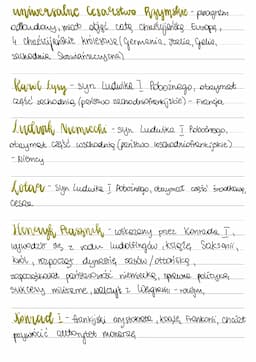 uniwersalne Cesarstwo Rzymskie - program
odbudowy, miał objąć całą chrześcijańską Europę,
4 chrześcijańskie królestwa (Germania, Italia, Galia,
zachodnia Słowiańszczyzna)
Karol Łysy - syn Ludwika I Pobożnego, otrzymał
część zachodnią (państwo zachodniofrankijskie) - Francja
Ludwik Niemiecki - syn Ludwika I Pobożnego,
otrzymał część wschodnią (państwo wschodniofrankijskie)
- Niemcy
Lotar - syn Ludwika I Pobożnego, otrzymał część środkową,
cesarz
Henryk Ptasznik - wskazany przez Konrada I,
wywodził się z rodu Ludolfingów, książę Saksonii,
król, rozpoczął dynastię sasów/ottońską,
zapoczątkował państwowość niemiecką, sprawna polityka,
sukcesy militarne, walczył z Węgrami
Konrad I - frankijski arystokrata, książę Frankonii, chciał
przywrócić autorytet monarszy